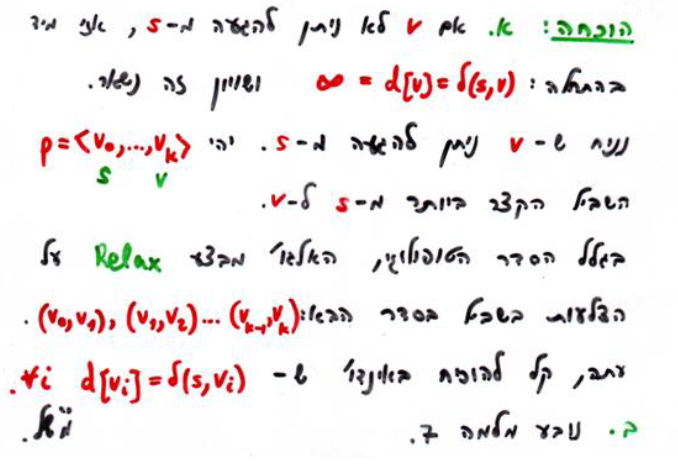 הוכחה: א. אם v לא ניתן להגעה מ-s, אזי מיד
בהתחלה: ∞ = d[v] = δ(s,v) ושוויון זה נשאר.
נניח ש-v ניתן להגעה מ-s. יהי p=<v₀,...,vₖ>
s v
השביל הקצר ביותר מ-s ל-v.
בגלל הסדר הטופולוגי, האלגו' מבצע Relax על
הצלעות בשביל בסדר הבא: (v₀,v₁), (v₁,v₂)... (vₖ₋₁,vₖ).
עתה, קל להוכיח באינדו' ש- ∀i d[vᵢ]=δ(s,vᵢ).
ב. נובע מלמה 7.